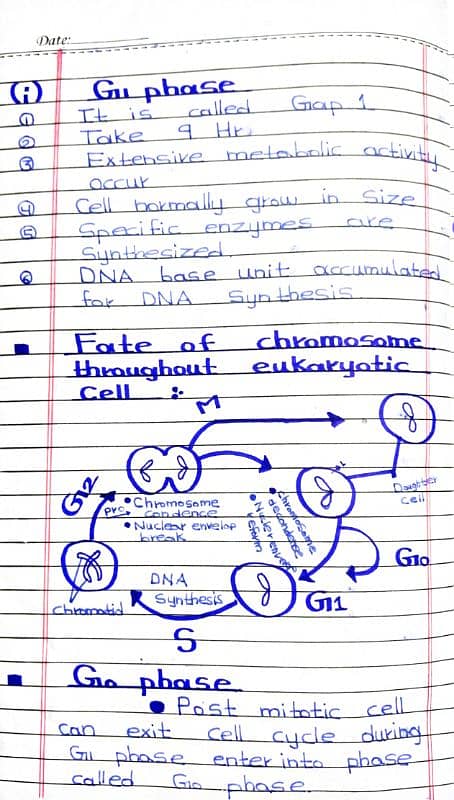 Date:
(i) G1 phase
① It is called Gap 1
② Take 9 Hr.
③ Extensive metabolic activity
occur
④ Cell normally grow in size
⑤ Specific enzymes are
Synthesized.
⑥ DNA base unit accumulated
for DNA Synthesis.
Fate of chromosome
throughout eukaryotic
Cell :-
M
G2
pro
• Chromosome
condence
• Nuclear envelop
break
• chromosome
decondense
• Nuclear envelope
reform
Daughter
cell
G0
G1
DNA
Synthesis
Chromatid
S
G0 phase
• Post mitotic cell
can exit cell cycle during
G1 phase enter into phase
called G0 phase.